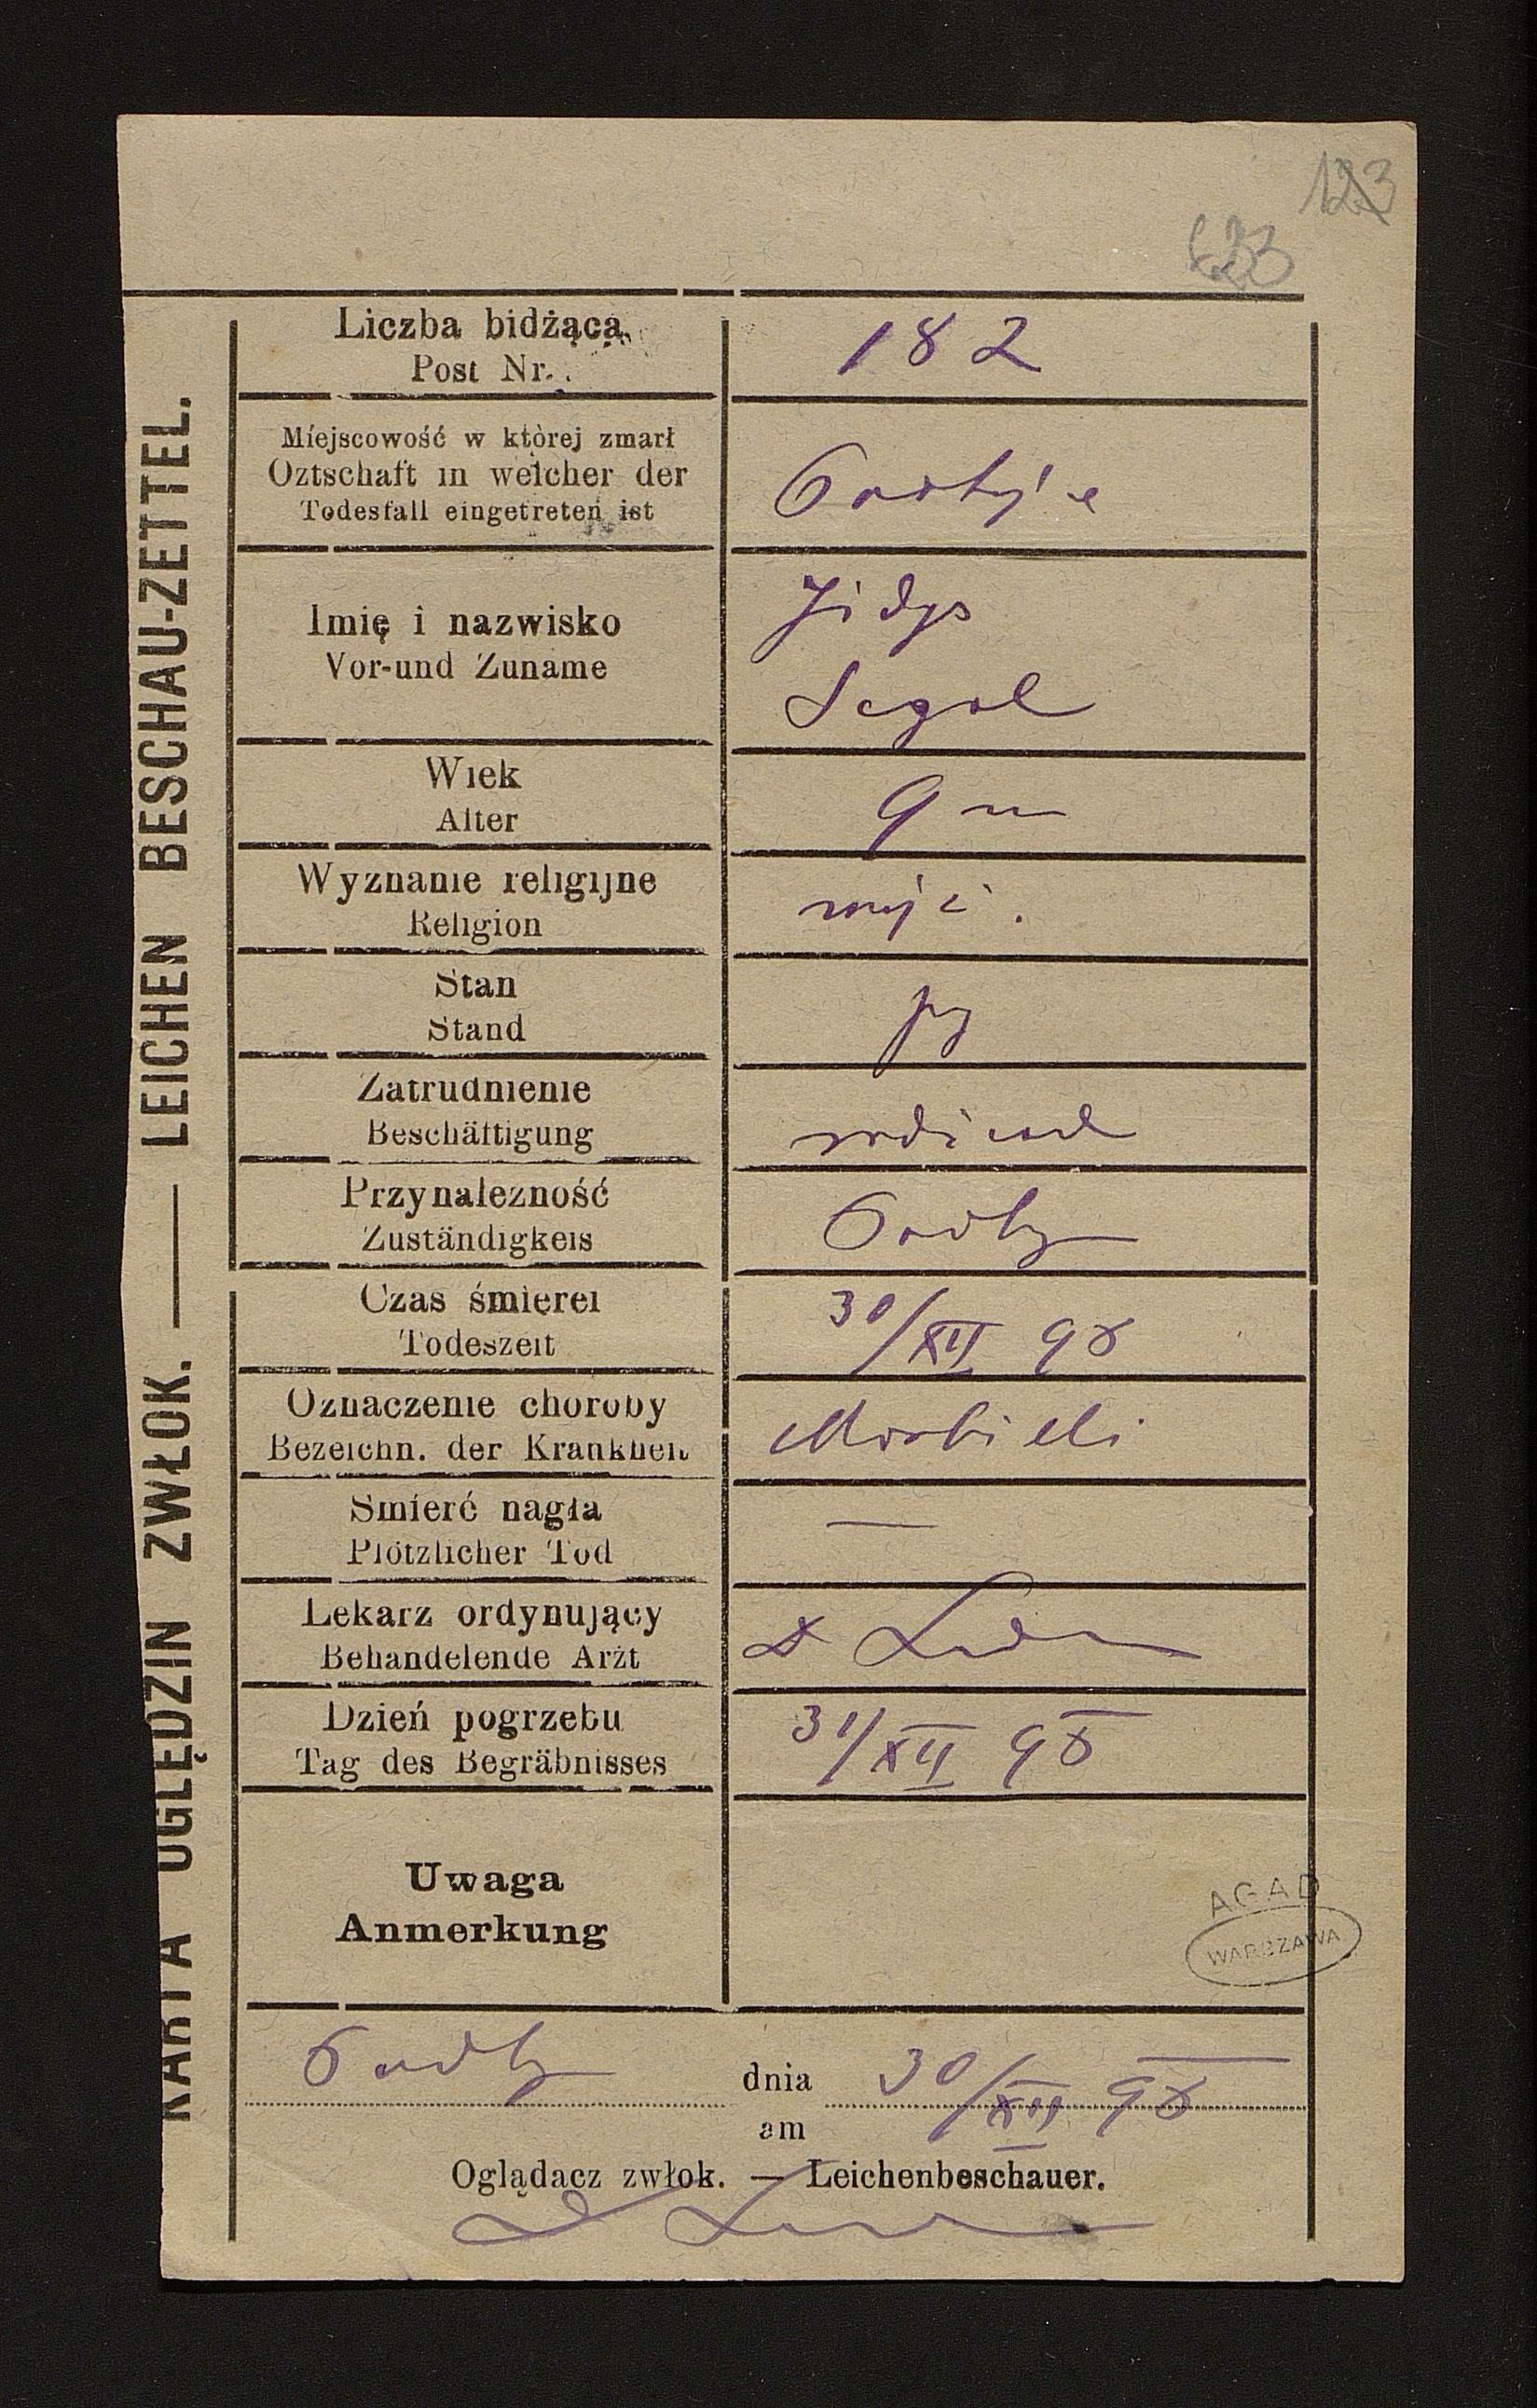 123
623
KARTA OGLĘDZIN ZWŁOK. — LEICHEN BESCHAU-ZETTEL.
Liczba bidżąca
Post Nr.
182
Miejscowość w której zmarł
Oztschaft in welcher der
Todesfall eingetreten ist
Imię i nazwisko
Vor-und Zuname
Segal
Wiek
Alter
9 m
Wyznanie religijne
Religion
mojż.
Stan
Stand
Zatrudnienie
Beschäftigung
Przynalezność
Zuständigkeis
Czas śmierci
Todeszeit
30/XII 98
Oznaczenie choroby
Bezeichn. der Krankheit
Morbilli
Smierć nagła
Plötzlicher Tod
—
Lekarz ordynujący
Behandelende Arzt
Dzień pogrzebu
Tag des Begräbnisses
31/XII 98
Uwaga
Anmerkung
AGAD
WARSZAWA
dnia 30/XII 98
am
Oglądacz zwłok. — Leichenbeschauer.